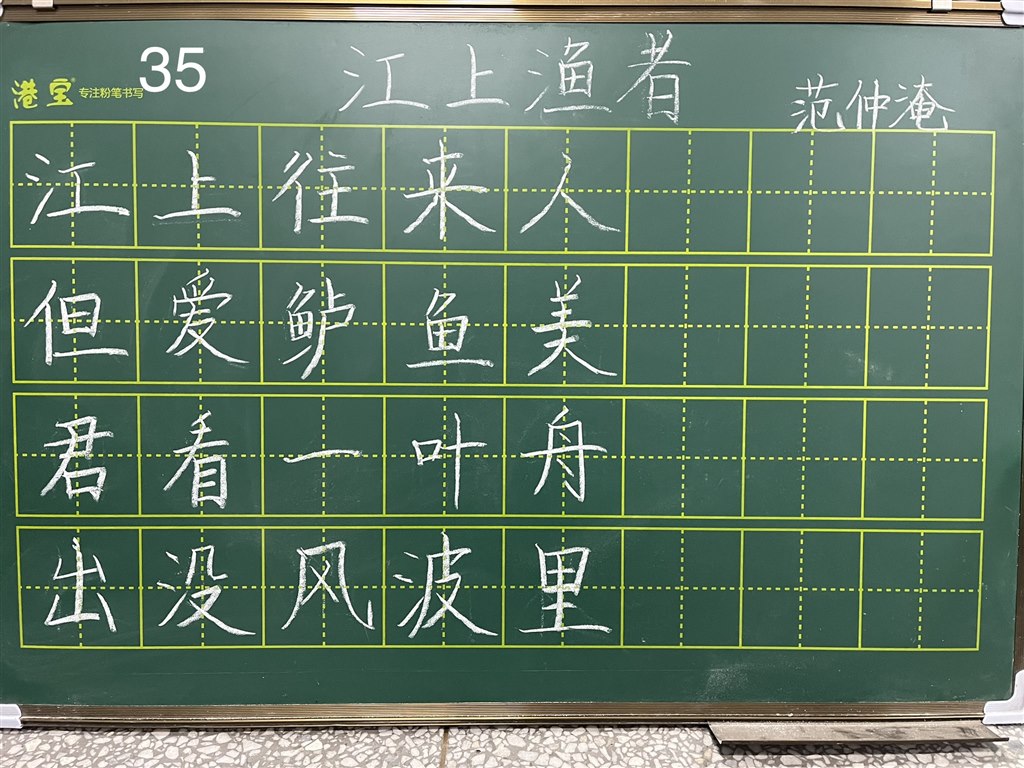 35
港宝® 专注粉笔书写
江上渔者
范仲淹
江上往来人
但爱鲈鱼美
君看一叶舟
出没风波里